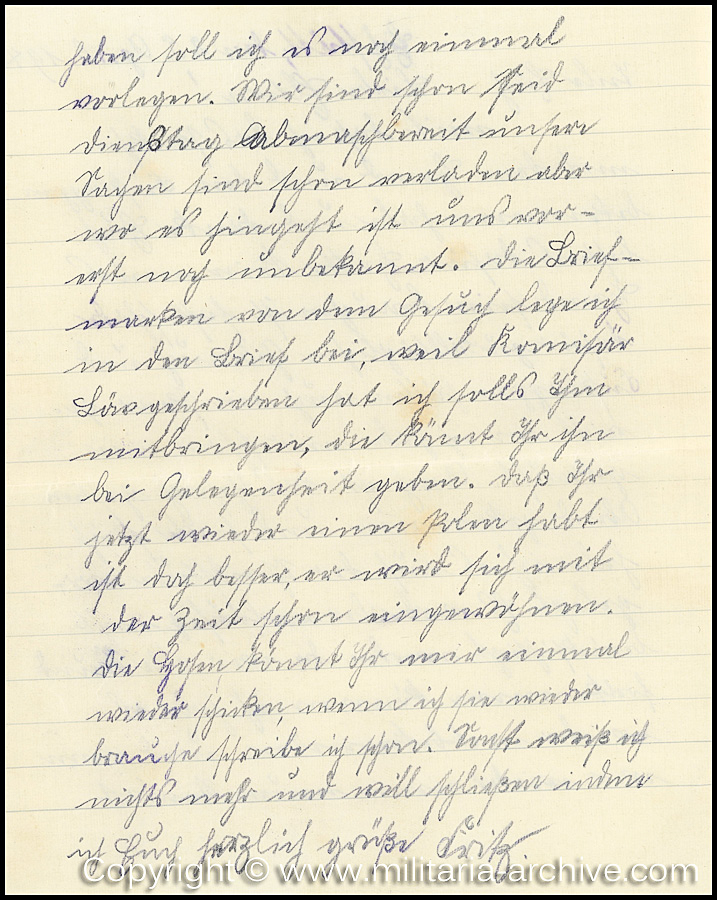 haben soll ich es noch einmal
vorlegen. Wir sind schon seid
Dienstag Abmaschbereit unsere
Sachen sind schon verladen aber
wo es hingeht ist uns vor-
erst noch unbekannt. Die Brief-
marken von dem Gesuch lege ich
in den Brief bei, weil Komisär
geschrieben hat ich solls Ihm
mitbringen, die könnt Ihr ihn
bei Gelegenheit geben. Daß Ihr
jetzt wieder einen Polen habt
ist doch besser, er wird sich mit
der Zeit schon eingewöhnen.
Die Hosen könnt Ihr mir einmal
wieder schicken, wenn ich sie wieder
brauche schreibe ich schon. Sonst weiß ich
nichts mehr und will schließen indem
ich Euch herzlich grüße Fritz.
Copyright © www.militaria-archive.com